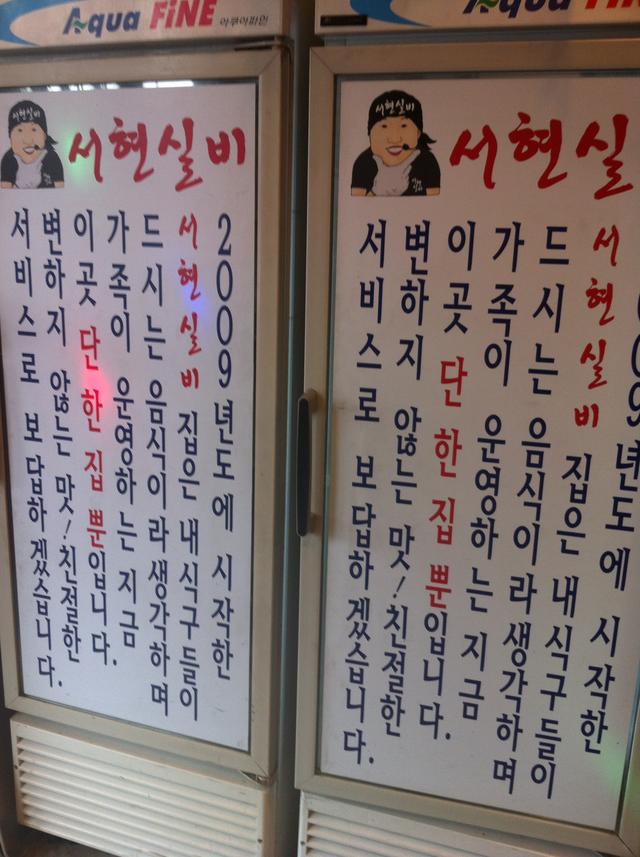 Aqua FiNE 아쿠아파인
서현실비
서현실비
2009년도에 시작한
서현실비 집은 내식구들이
드시는 음식이라 생각하며
가족이 운영하는 지금
이곳 단 한집 뿐입니다.
변하지 않는 맛! 친절한
서비스로 보답하겠습니다.
Aqua
서현실비
서현실
09년도에 시작한
서현실비 집은 내식구들이
드시는 음식이라 생각하며
가족이 운영하는 지금
이곳 단 한집 뿐입니다.
변하지 않는 맛! 친절한
서비스로 보답하겠습니다.